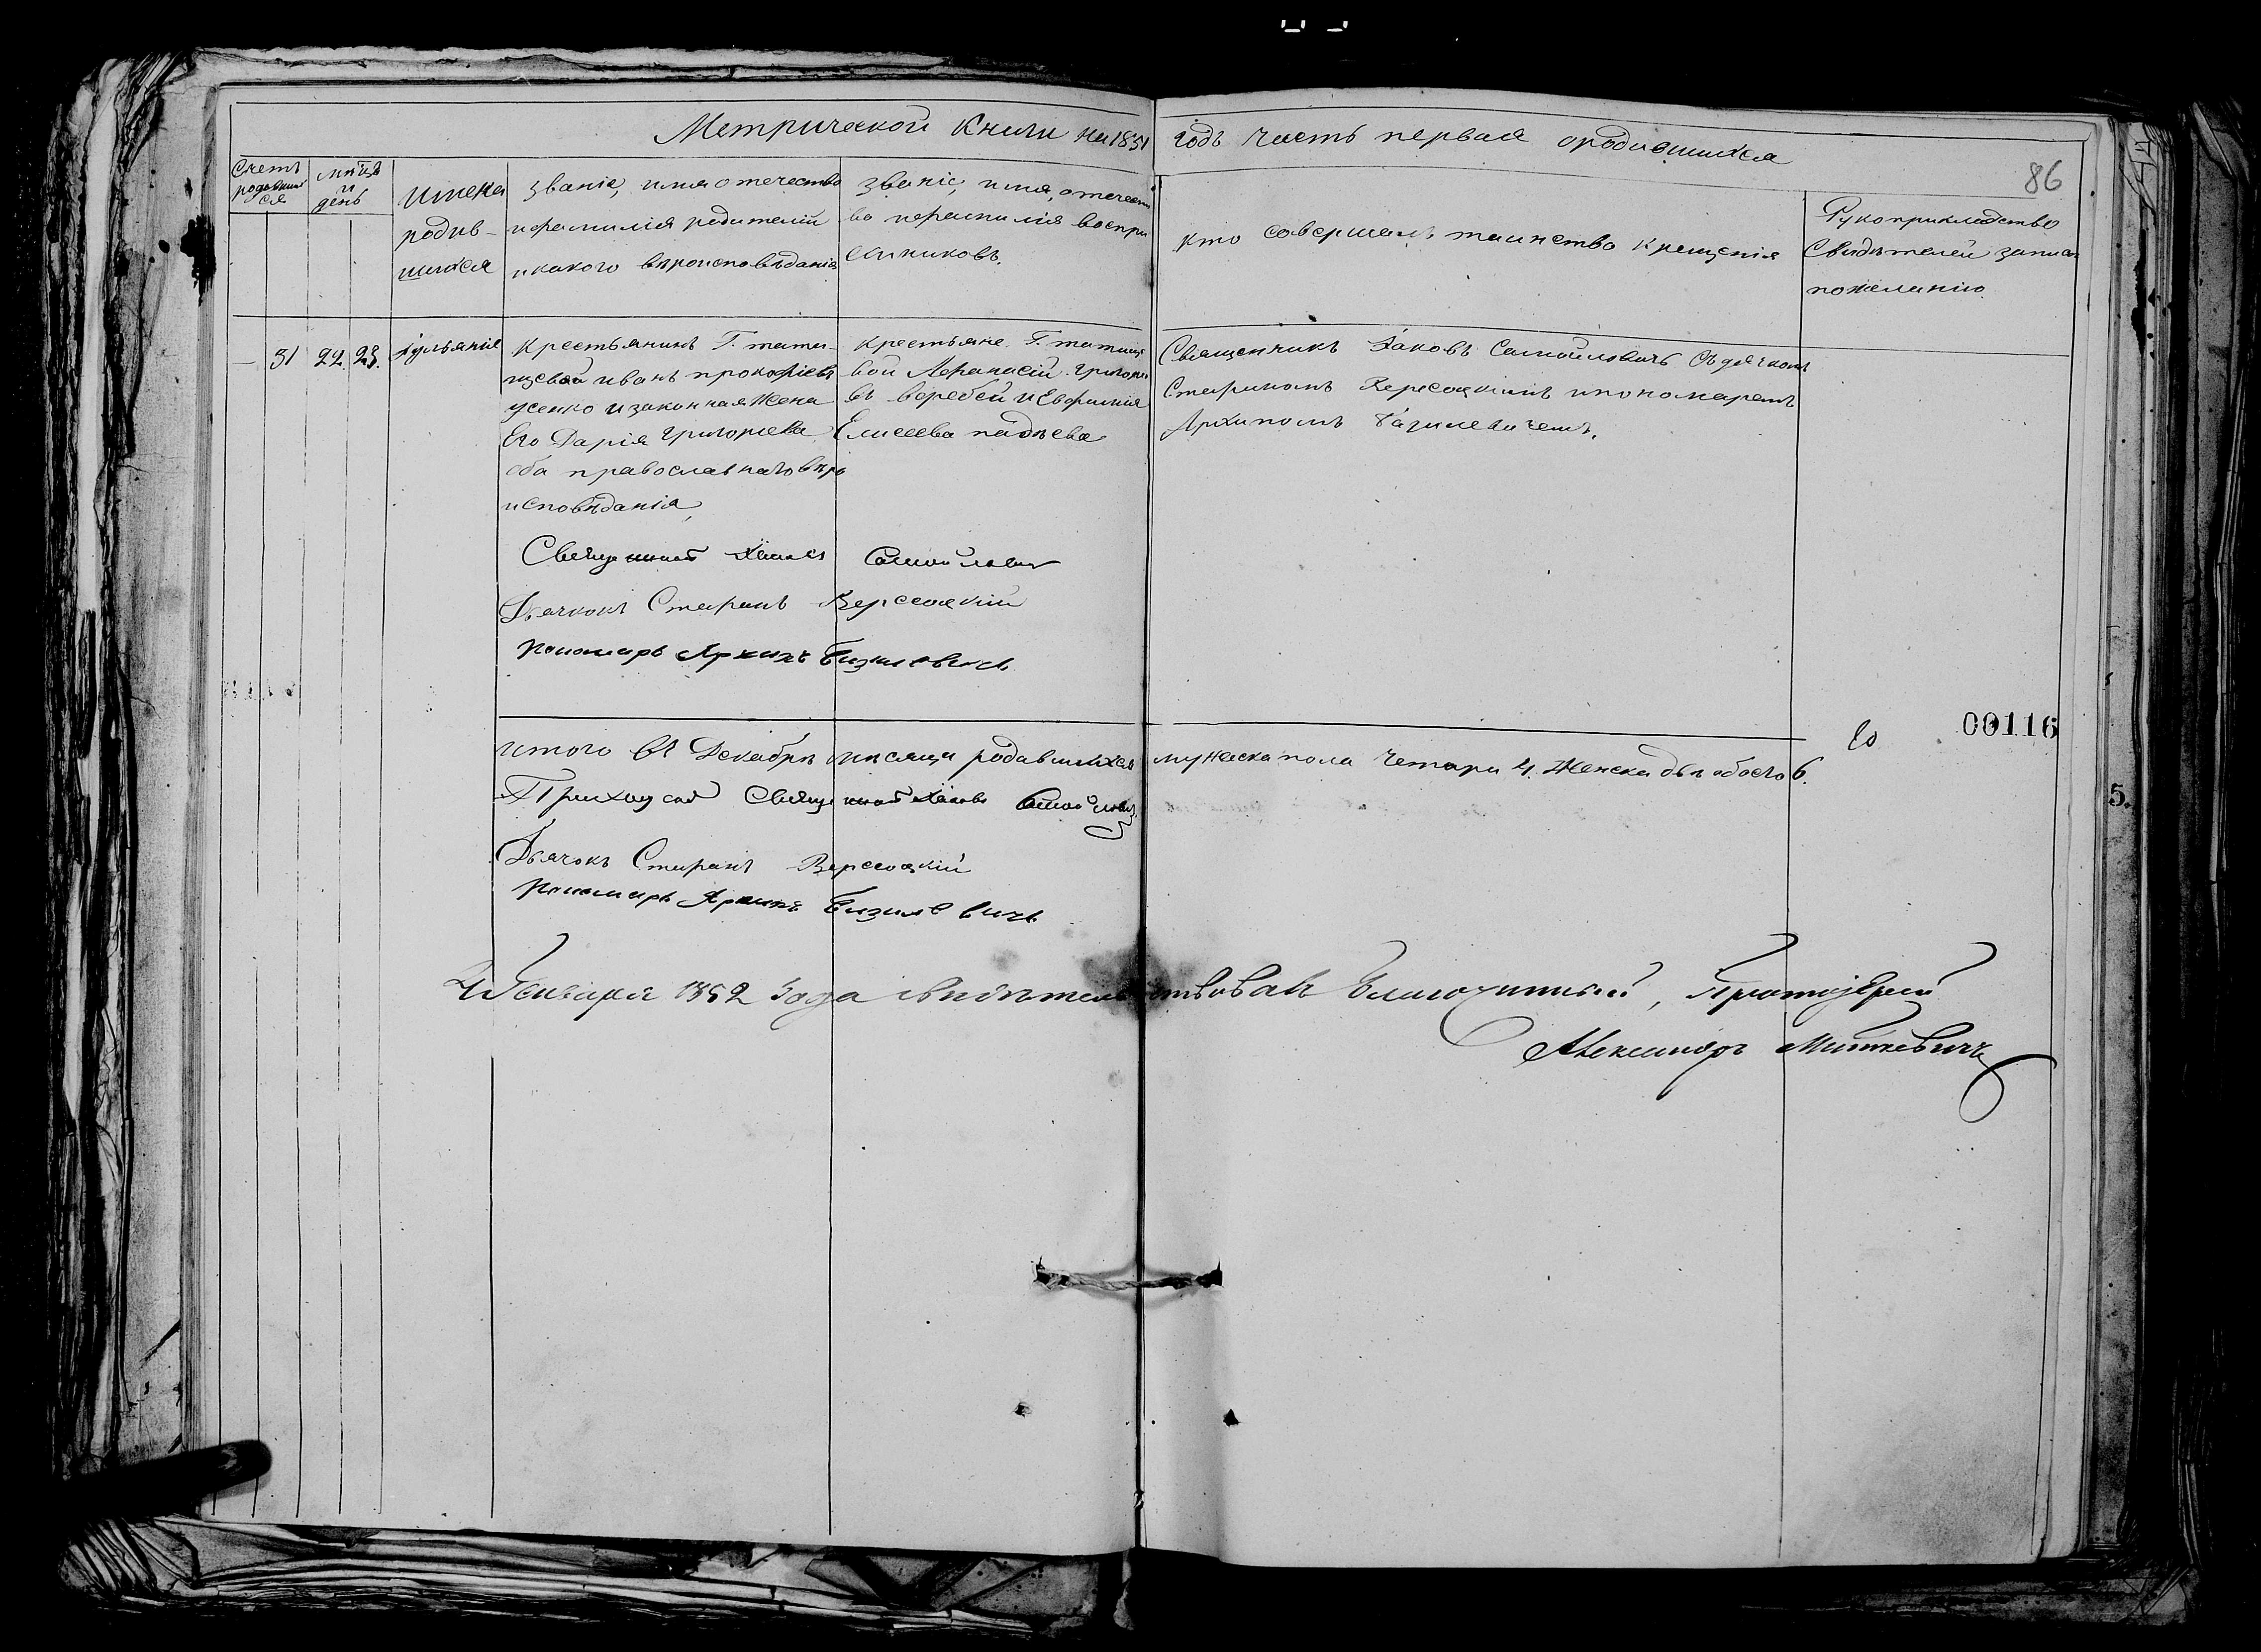 Метрической Книги на 1851 годъ часть первая ородившихся
86
Счетъ родившихся
мѣсяцъ и день
имена родившихся
званіе, имя отечество ифамилія родителей икакого вѣроисповѣданія
званіе, имя, отечество ифамилія воспріемниковъ.
кто совершалъ таинство крещенія
Рукоприкладство свидѣтелей записи пожеланію.
31 22 23. Іульянія
Крестьянинъ Г. тати-
щевой иванъ прокофіевъ
усенко изаконная Жена
Его Дарія григориева
оба православнаго вѣро
исповѣданія,
крестьяне Г. татище
вой Афанасій григорі
въ воребей и Евфимія
Елисеева
Священникъ Іаковъ Самойловичъ съ дячкомъ
Стефаномъ Вересоцкимъ ипономаремъ
Архипомъ Базилевичемъ.
Священникъ Іаковъ Самойлович
Дьячокъ Стефанъ Вересоцкій
Пономарь Архипъ Базилевичъ
00116
итого въ Декабрѣ мѣсяцѣ родившихся мужеска пола Четыри 4. Женска двѣ обоего 6.
Приходской Священникъ Іаковъ Самойлович
Дьячокъ Стефанъ Вересоцкій
Пономарь Архипъ Базилевичъ
Генваря 1852 года свидѣтельствовалъ Благочинный, Протоіерей
Александръ Миткевичъ